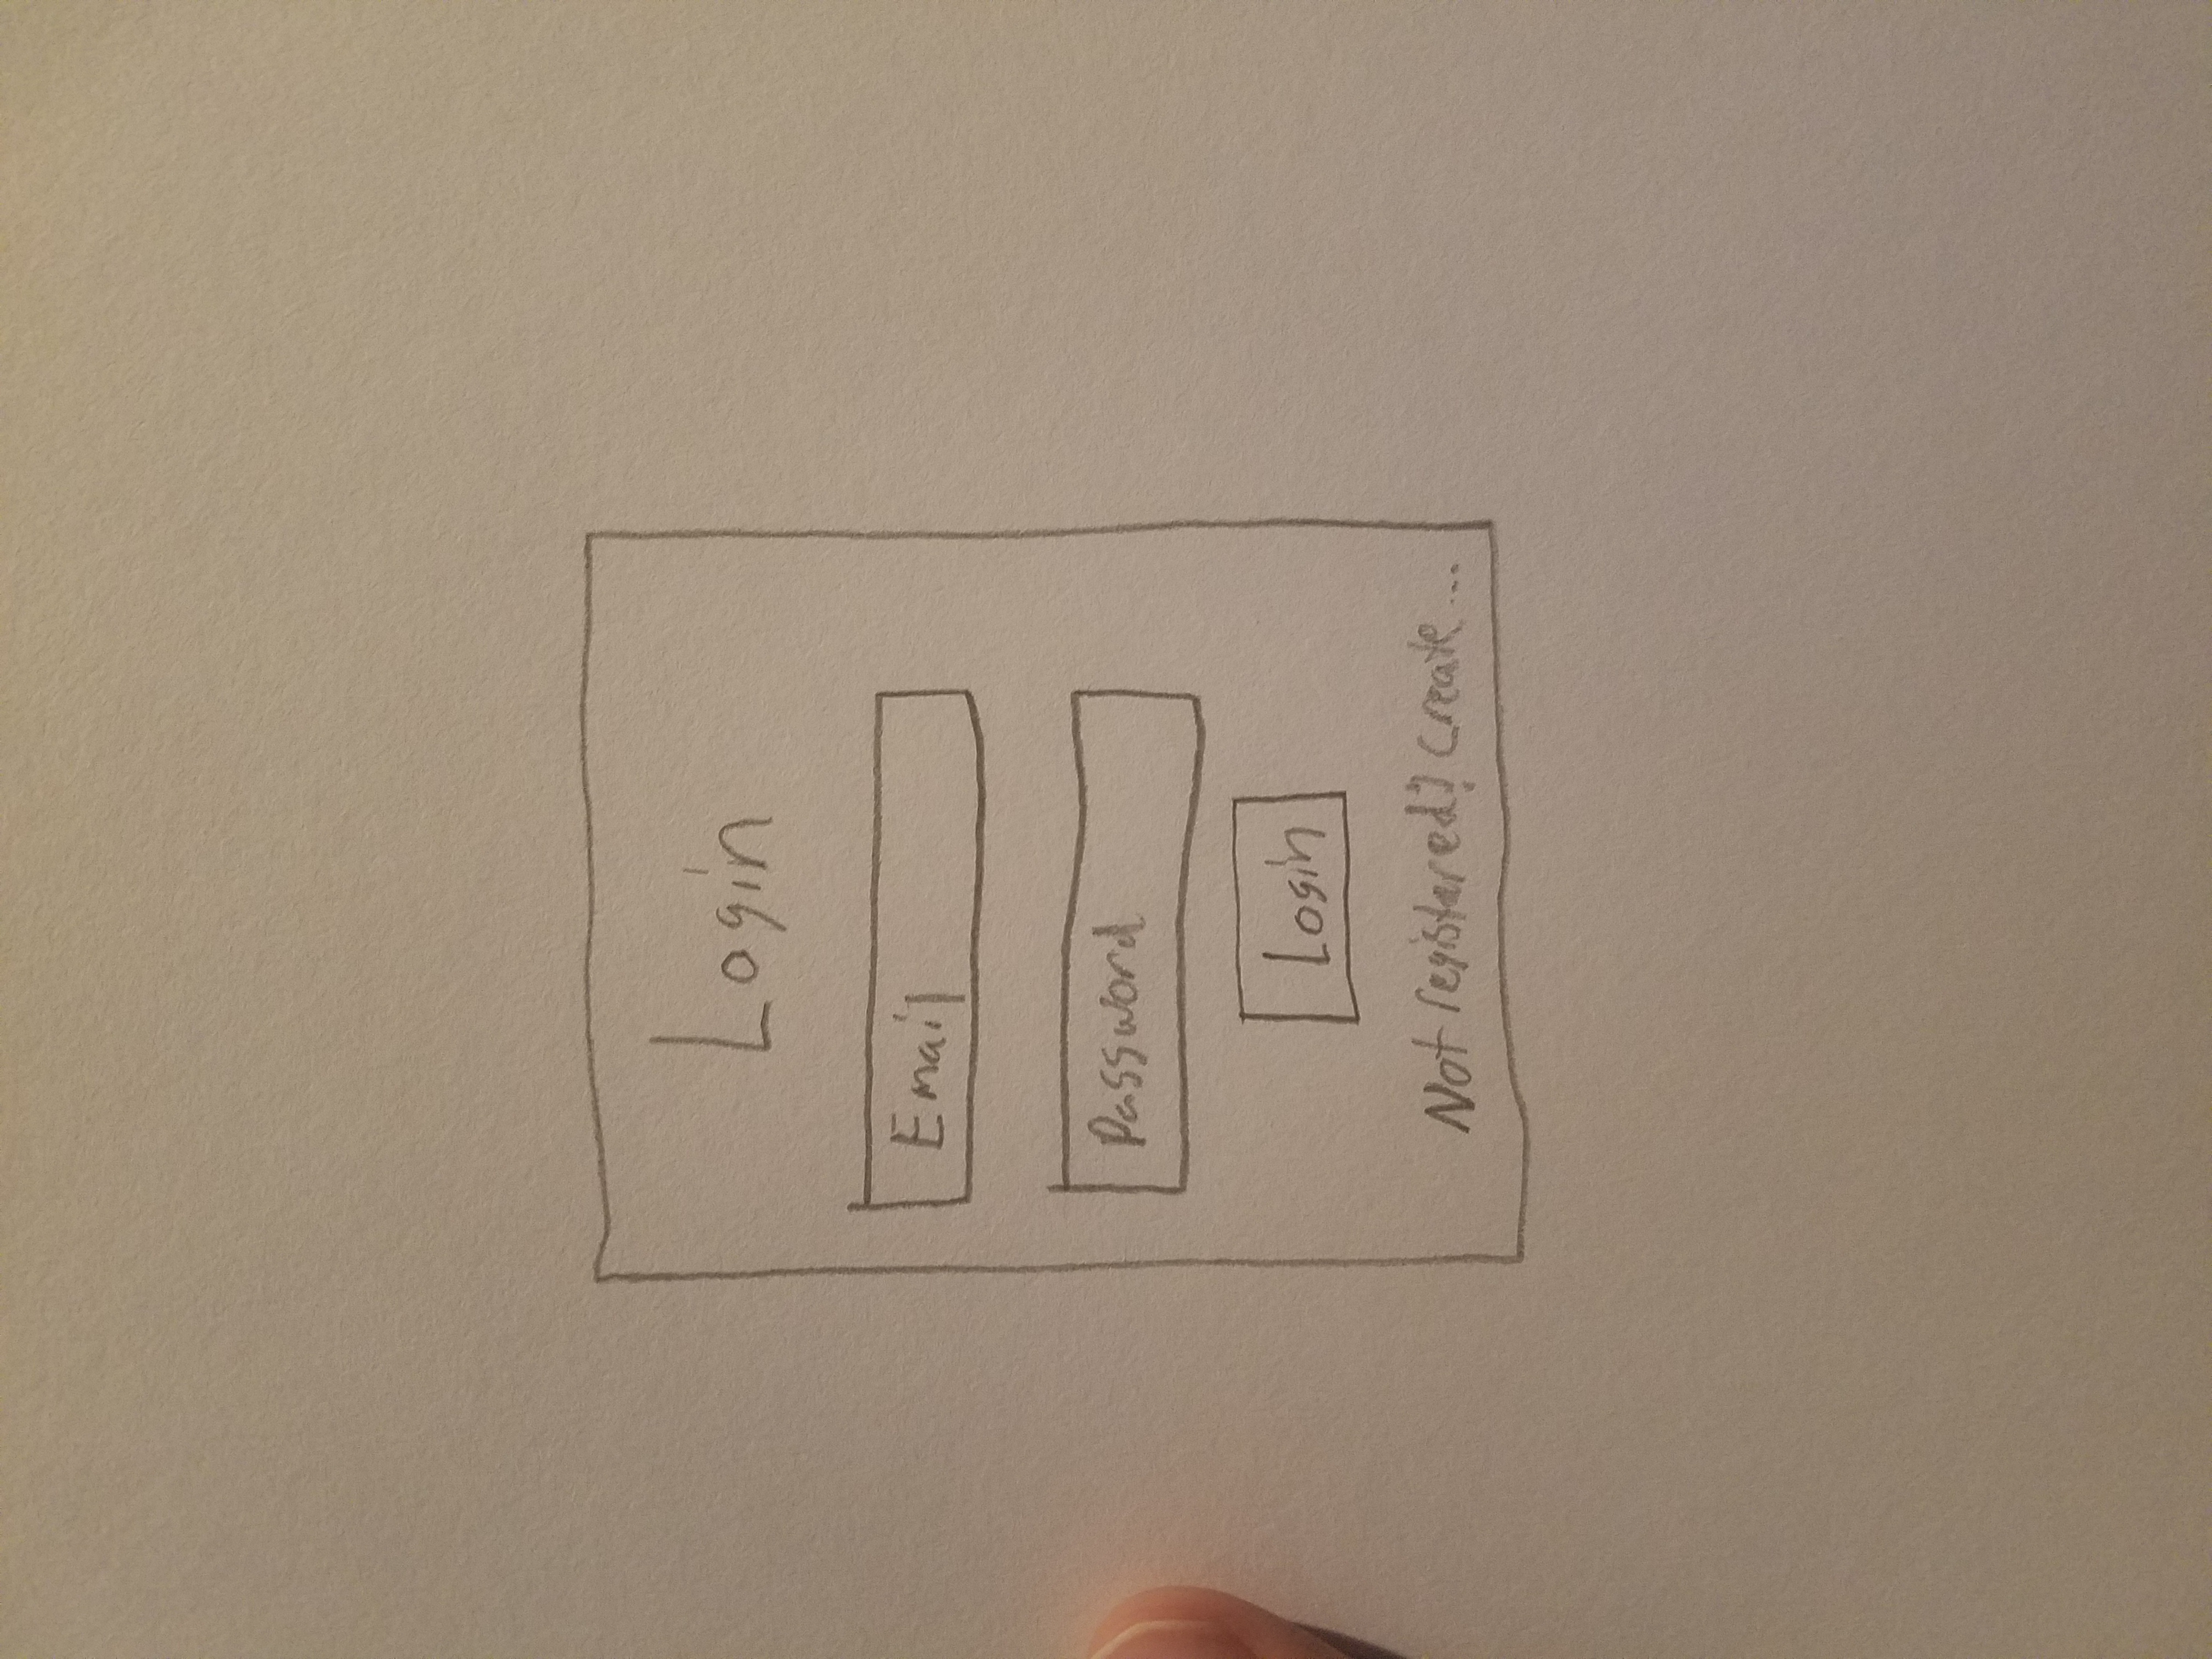 Login
Email
Password
Login
Not registered? Create...